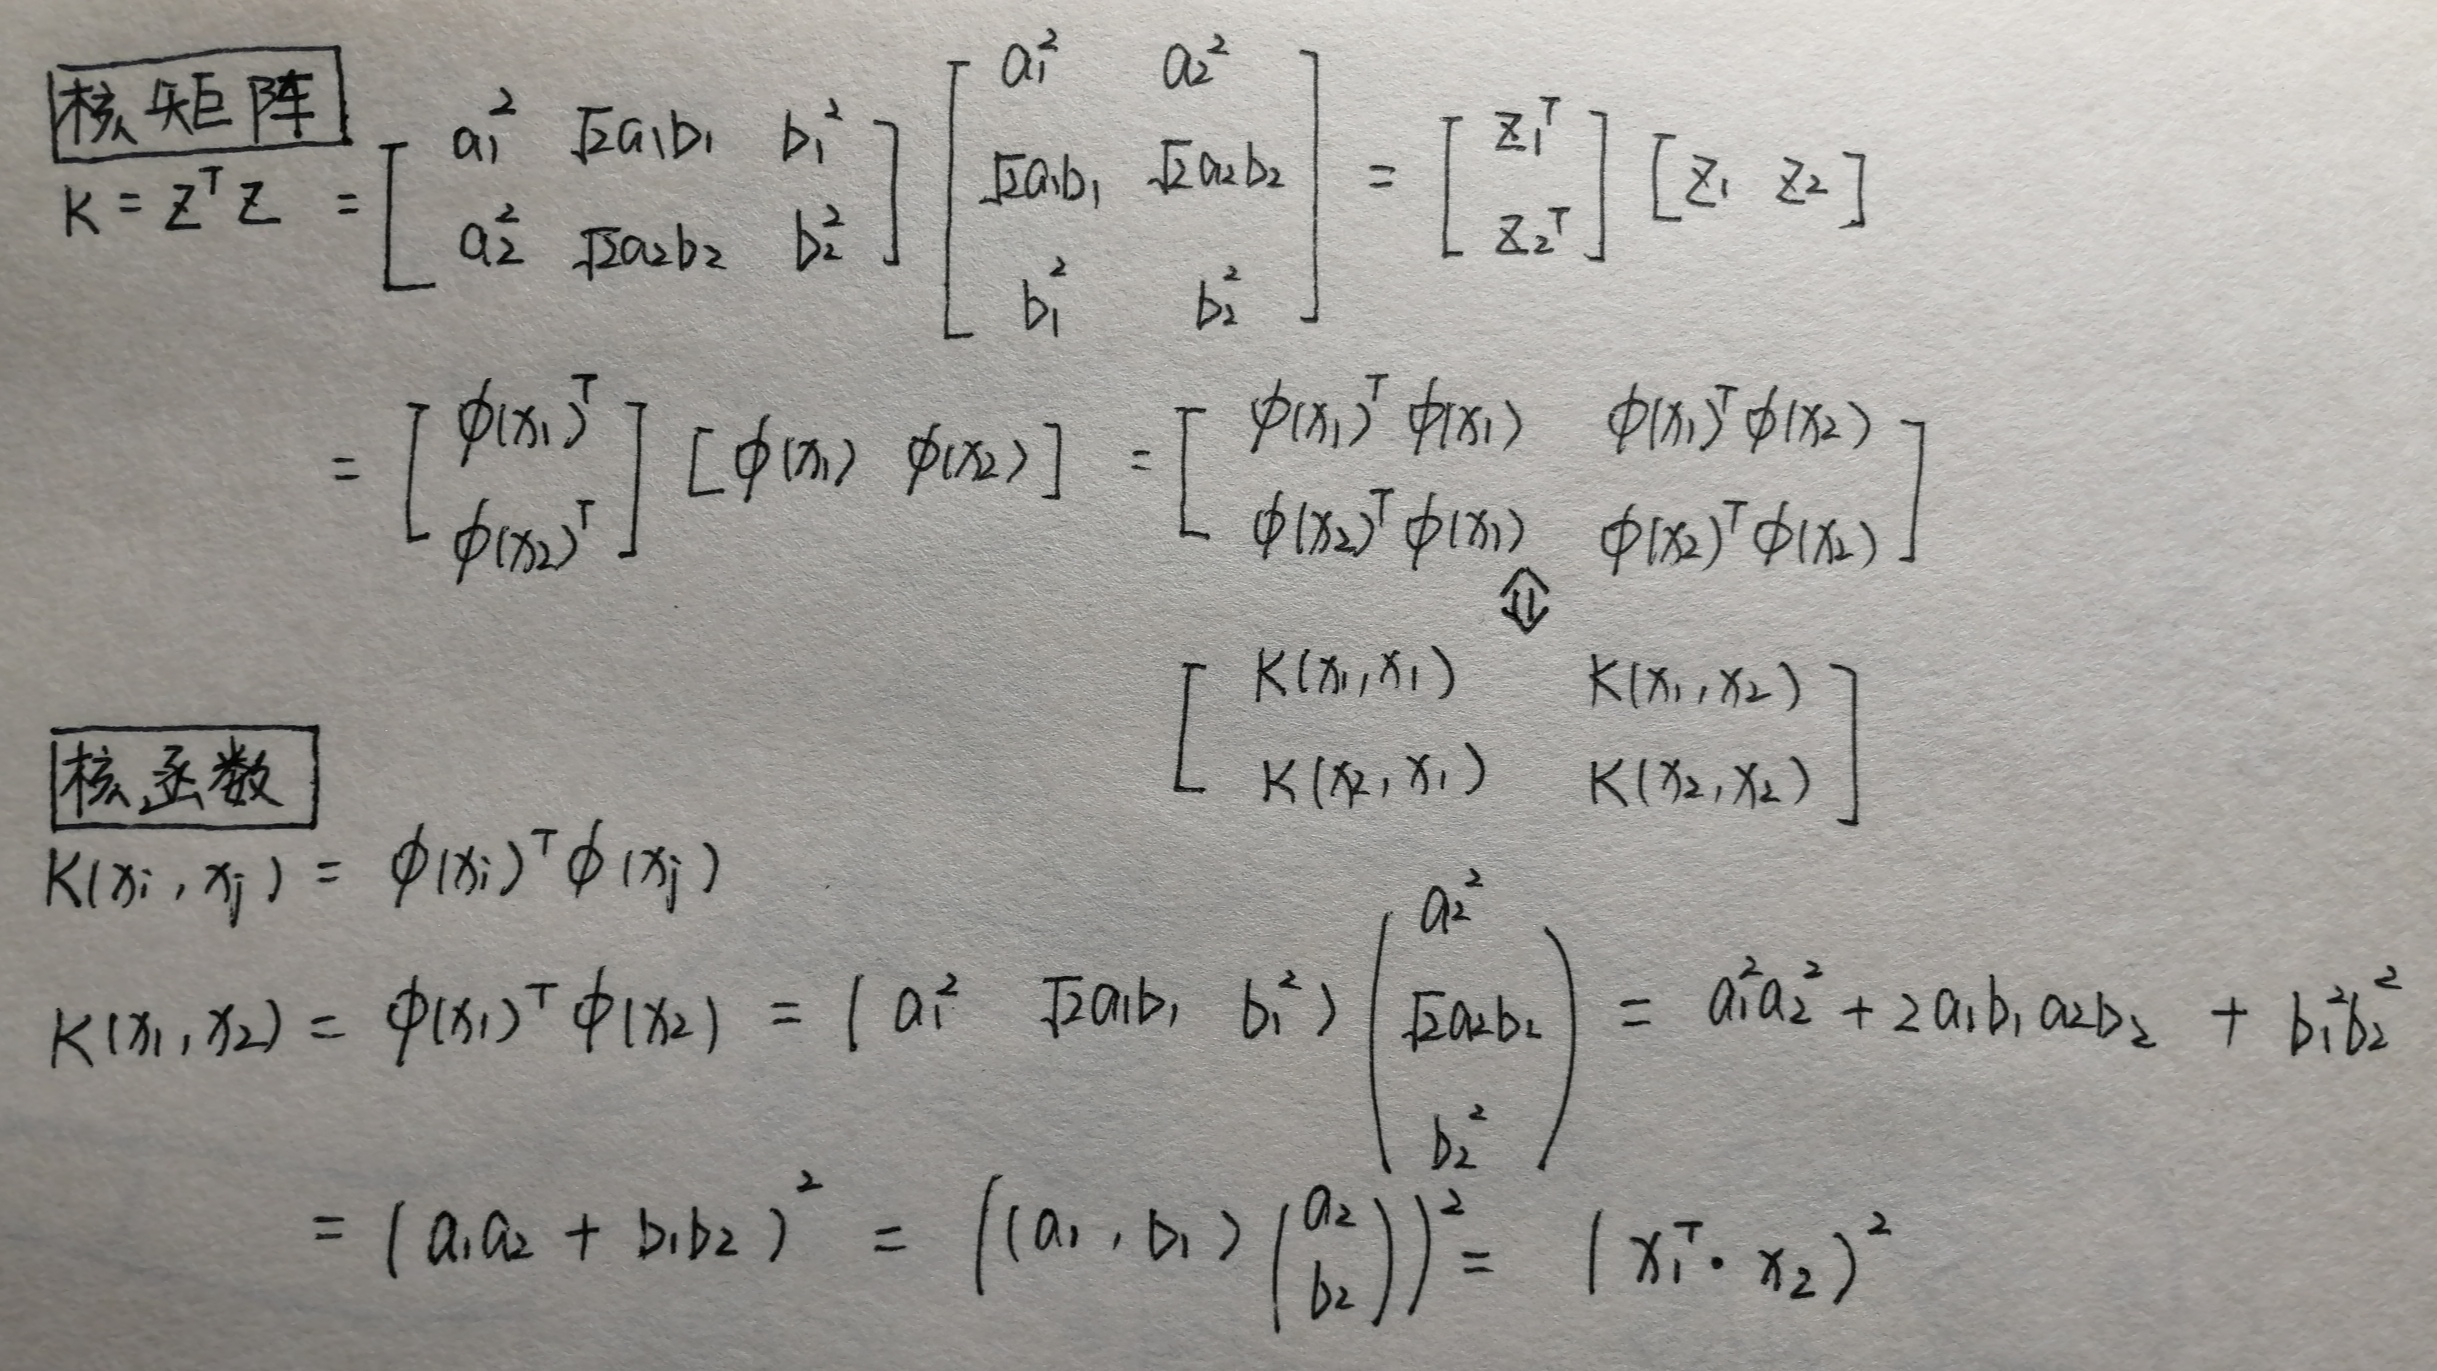 核矩阵
K = Z^T Z = [ a₁² √2a₁b₁ b₁² ; a₂² √2a₂b₂ b₂² ] [ a₁² a₂² ; √2a₁b₁ √2a₂b₂ ; b₁² b₂² ] = [ Z₁^T ; Z₂^T ] [ Z₁ Z₂ ]
= [ φ(x₁)^T ; φ(x₂)^T ] [ φ(x₁) φ(x₂) ] = [ φ(x₁)^T φ(x₁) φ(x₁)^T φ(x₂) ; φ(x₂)^T φ(x₁) φ(x₂)^T φ(x₂) ]
⇕
[ K(x₁,x₁) K(x₁,x₂) ; K(x₂,x₁) K(x₂,x₂) ]
核函数
K(xᵢ,xⱼ) = φ(xᵢ)^T φ(xⱼ)
K(x₁,x₂) = φ(x₁)^T φ(x₂) = ( a₁² √2a₁b₁ b₁² ) ( a₂² ; √2a₂b₂ ; b₂² ) = a₁²a₂² + 2a₁b₁a₂b₂ + b₁²b₂²
= ( a₁a₂ + b₁b₂ )² = ( (a₁,b₁) ( a₂ ; b₂ ) )² = ( x₁^T · x₂ )²